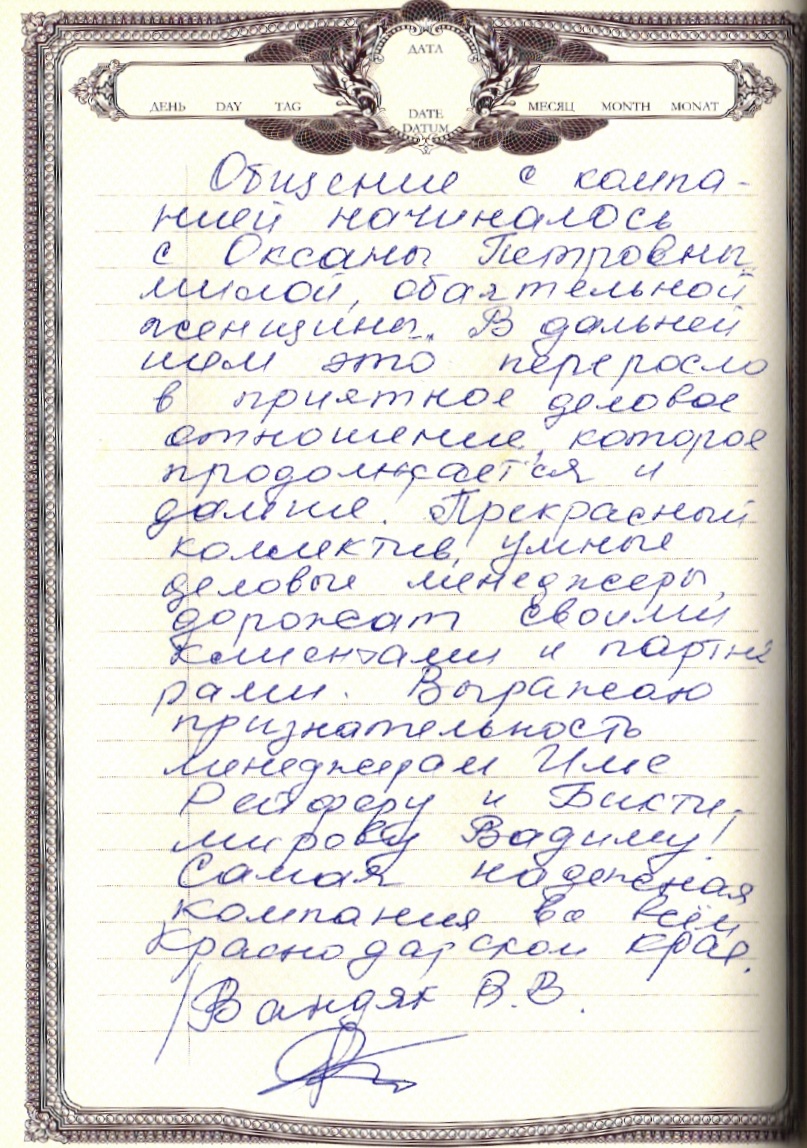 ДАТА
ДЕНЬ DAY TAG
DATE
DATUM
МЕСЯЦ MONTH MONAT
Общение с компа-
нией начиналось
с Оксаны Петровны
милой, обаятельной
женщины. В дальней
шем это переросло
в приятное деловое
отношение, которое
продолжается и
дальше. Прекрасный
коллектив, умные
деловые менеджеры,
дорожат своими
клиентами и партнё
рами. Выражаю
признательность
менеджерам Илье
Рейферу и Бикти-
мирову Вадиму!
Самая надежная
компания во всём
Краснодарском крае.
Вандяк В.В.